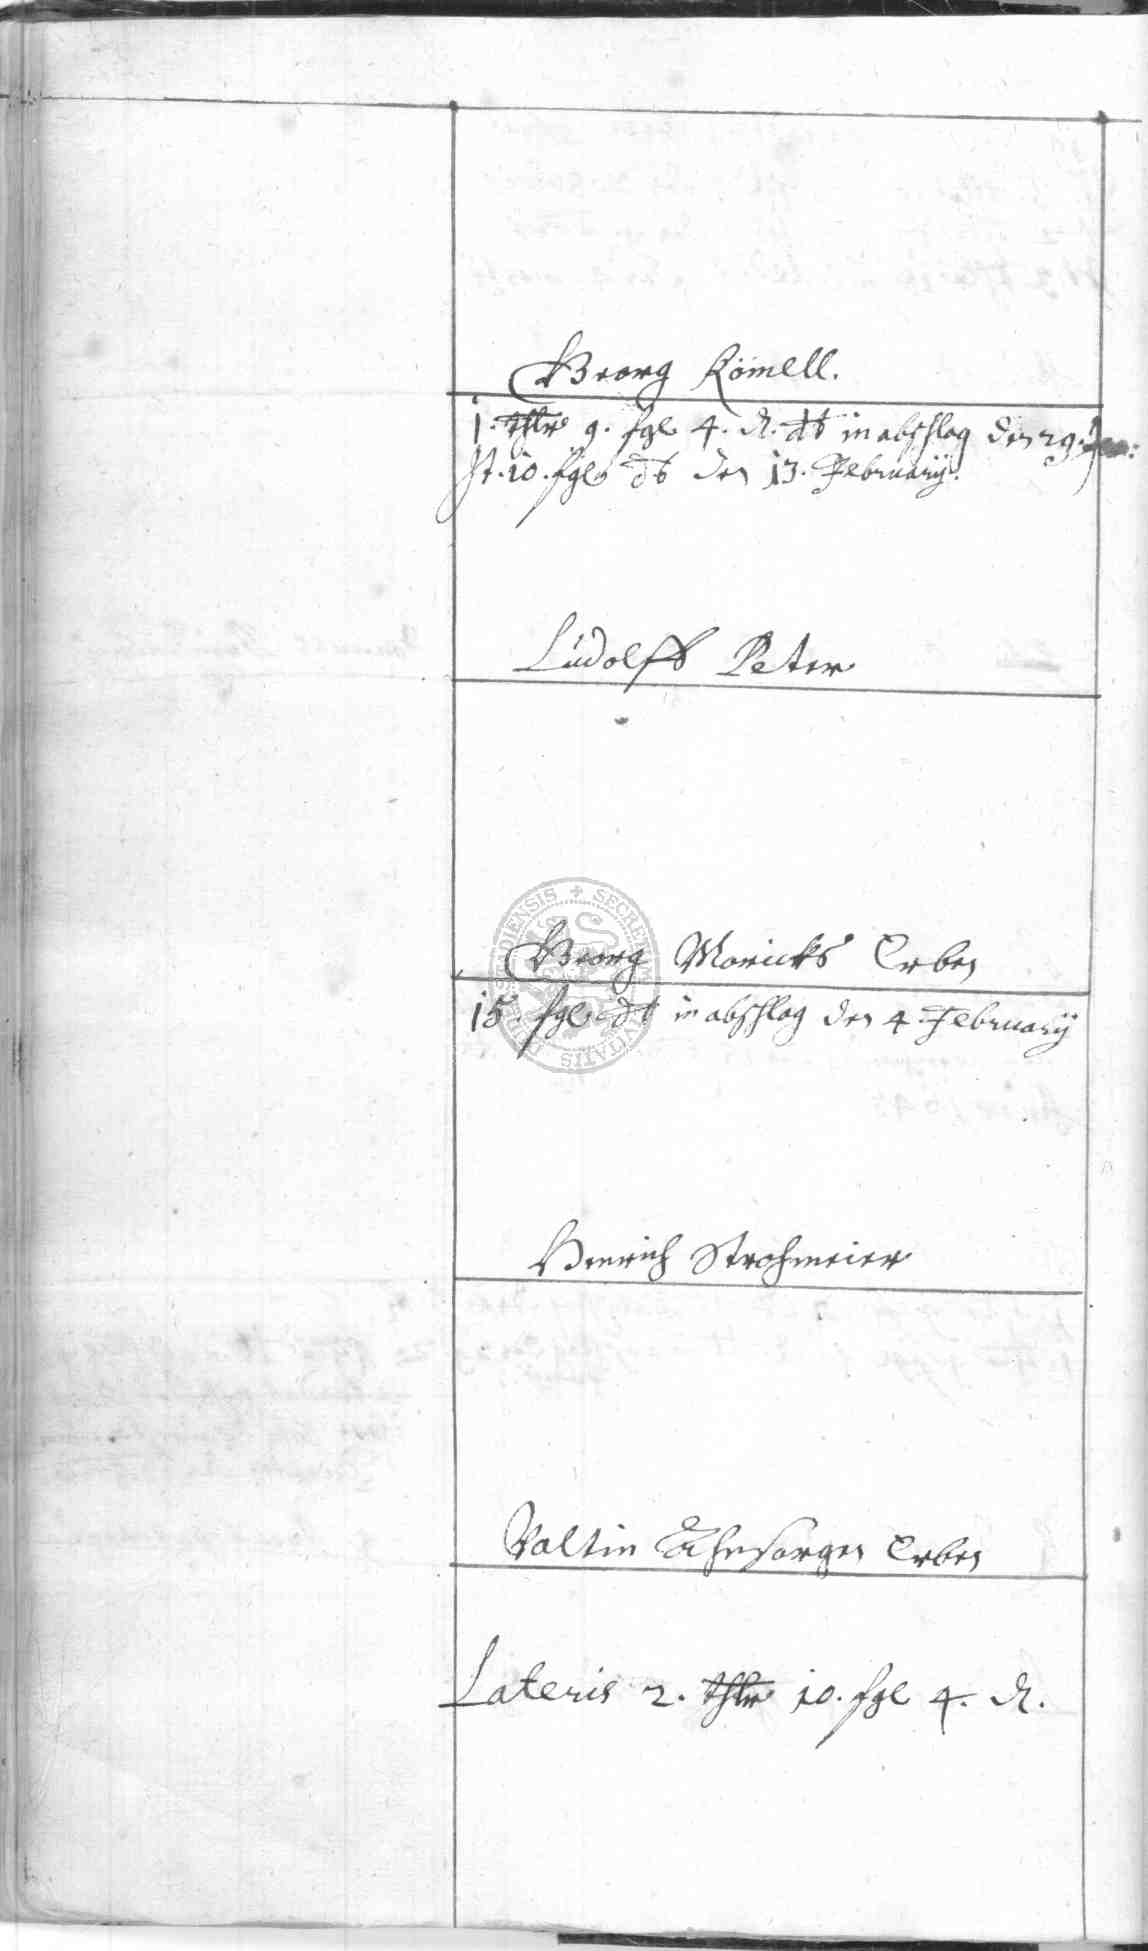 Georg Römell.
1. thlr 9. sgl 4. d. dt in abschlag den 29. Jan:
It. 10. sgl dt den 13. February.
Ludolff Peter
Georg Moricks Erben
15 sgl dt in abschlag den 4 February
Henrich Strohmeier
Valtin Ahnsorgen Erben
Lateris 2. thlr 10. sgl 4. d.
SECRETUM CIVITATIS